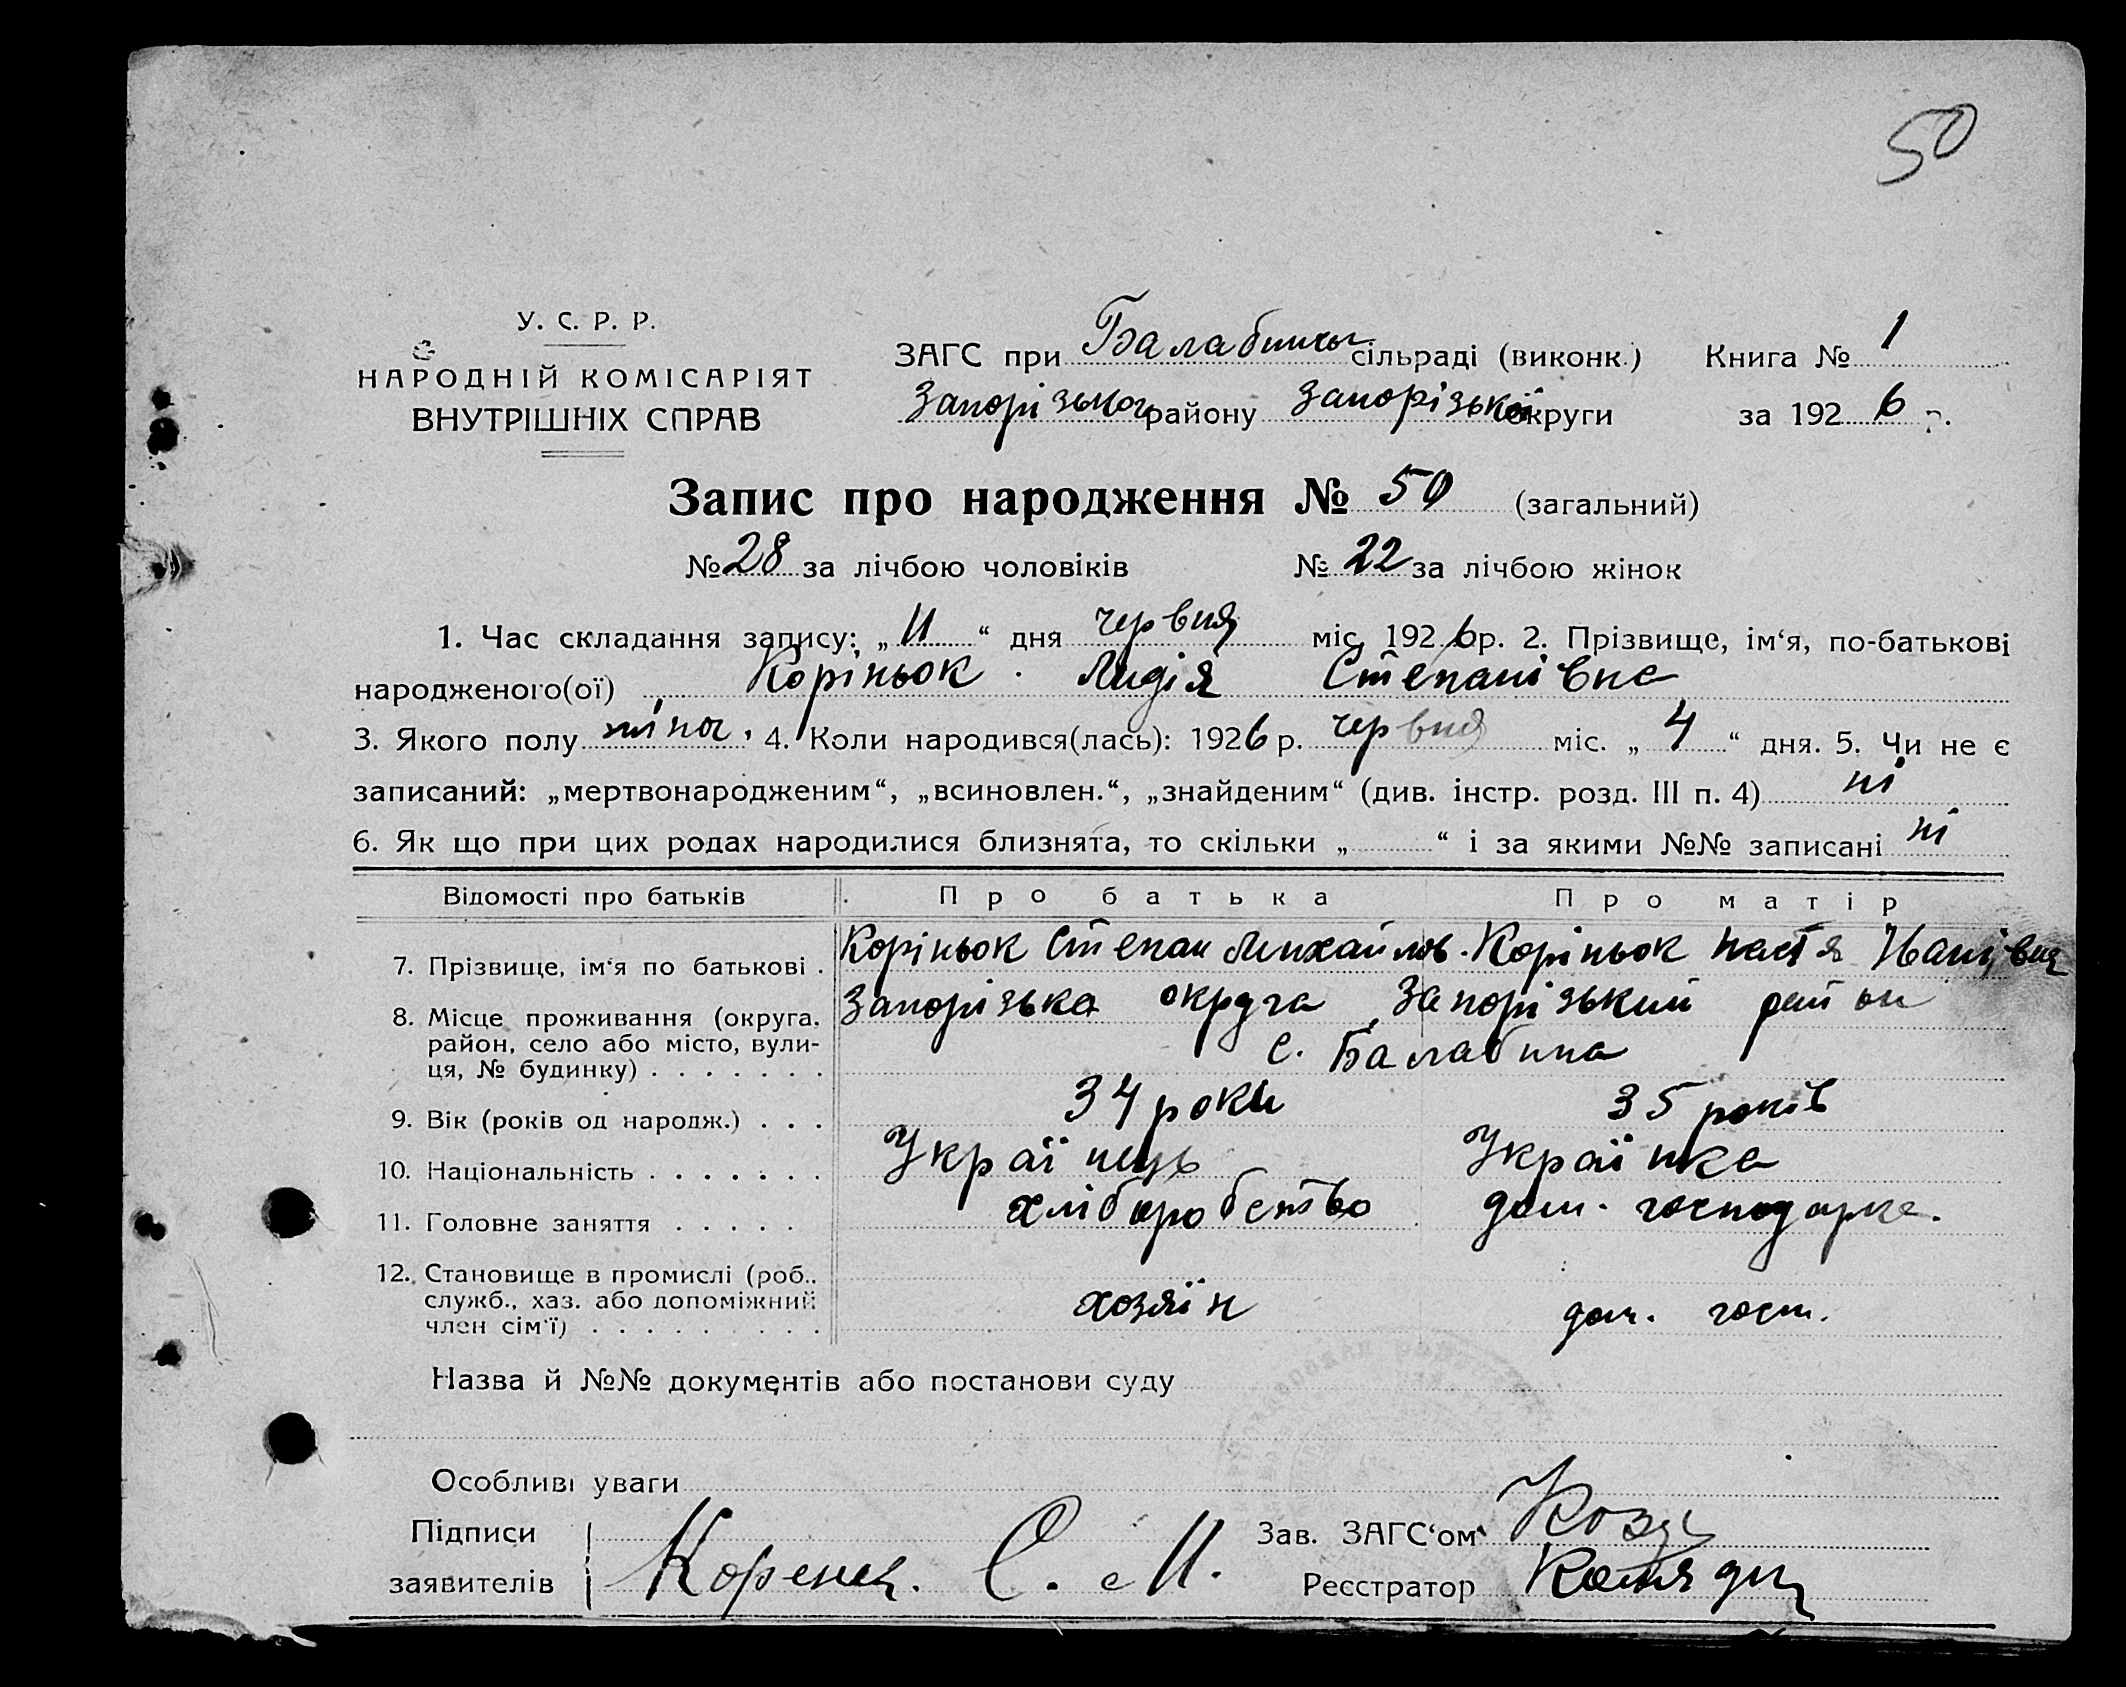 50
У. С. Р. Р.
НАРОДНІЙ КОМІСАРІЯТ
ВНУТРІШНІХ СПРАВ
ЗАГС при сільраді (виконк.) Книга № 1
району Запорізької округи за 192 6 р.
Запис про народження № 50 (загальний)
№ 28 за лічбою чоловіків № 22 за лічбою жінок
1. Час складання запису: „ 11 “ дня червня міс. 192 6 р. 2. Прізвище, ім‘я, по-батькові
народженого(ої) Коріньок Лидія Степанівна
3. Якого полу жіноч. 4. Коли народився(лась): 192 6 р. червня міс. „ 4 “ дня. 5. Чи не є
записаний: „мертвонародженим“, „всиновлен.“, „знайденим“ (див. інстр. розд. III п. 4) ні
6. Як що при цих родах народилися близнята, то скільки „ “ і за якими №№ записані ні
Відомості про батьків Про батька Про матір
7. Прізвище, ім‘я по батькові . Коріньок Степан Михайлов. Коріньок Настя Іванівна
8. Місце проживання (округа, Запорізька округа Запорізький район
район, село або місто, вули- с. Балабина
ця, № будинку) . . . . . . .
9. Вік (років од народж.) . . . 34 роки 35 років
10. Національність . . . . . . . Українець Українка
11. Головне заняття . . . . . хліборобство дом. господарка.
12. Становище в промислі (роб.,
служб., хаз. або допоміжний хозяїн дом. госп.
член сім‘ї) . . . . . . . . .
Назва й №№ документів або постанови суду
Особливі уваги
Підписи Зав. ЗАГС‘ом
заявителів С. М. Реєстратор